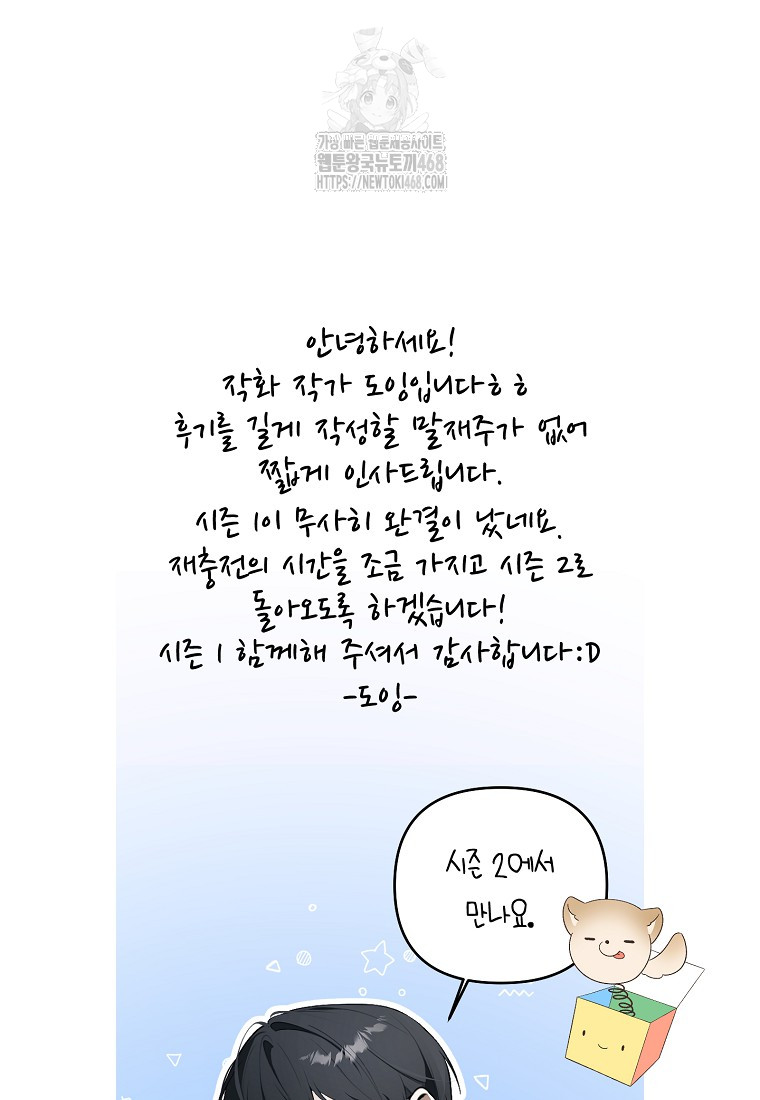 가장 빠른 웹툰제공사이트,
웹툰왕국뉴토끼468
HTTPS://NEWTOKI468.COM
안녕하세요!
작화 작가 도잉입니다ㅎㅎ
후기를 길게 작성할 말재주가 없어
짧게 인사드립니다.
시즌 1이 무사히 완결이 났네요.
재충전의 시간을 조금 가지고 시즌 2로
돌아오도록 하겠습니다!
시즌 1 함께해 주셔서 감사합니다:D
-도잉-
시즌 2에서
만나요.